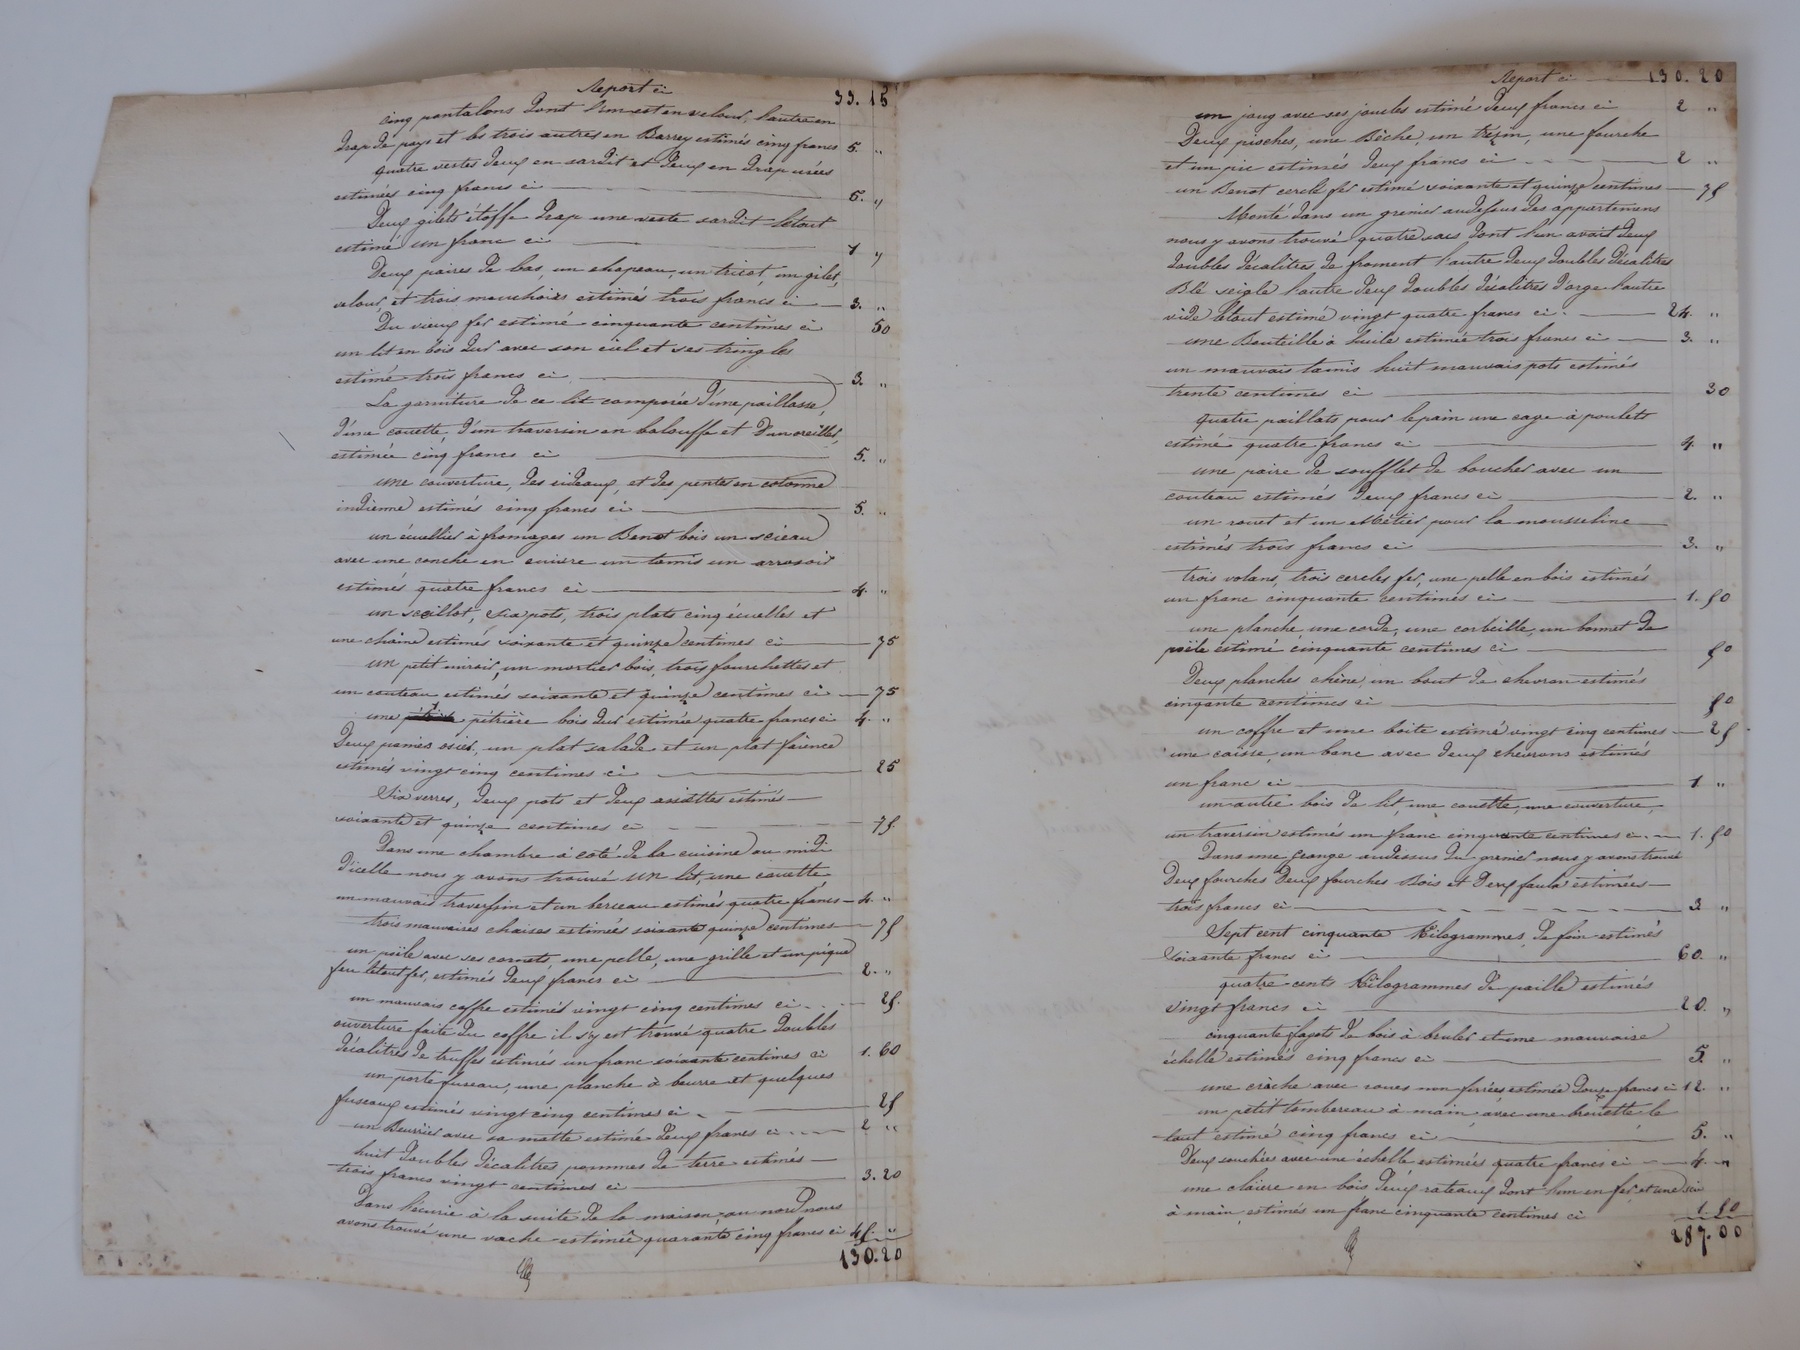 Report ci 33. 15
cinq pantalons dont l'un est en velour, l'autre en
drap de pays et les trois autres en Barrey estimés cinq francs 5. "
quatre vestes deux en sardit et deux en drap usées
estimés cinq francs ci 5. "
Deux gilets étoffe drap une veste sardit letout
estimé un franc ci 1 "
Deux paires de bas, un chapeau, un tricot, un gilet,
velour, et trois mouchoirs estimés trois francs ci 3. "
Du vieux fer estimé cinquante centimes ci 50
un lit en bois dur avec son ciel et ses tringles
estimé trois francs ci 3. "
La garniture de ce lit composée d'une paillasse,
d'une couette, d'un traversin en balouffe et d'un oreiller,
estimée cinq francs ci 5. "
une couverture, des rideaux, et des pentes en cotonne
indienne estimés cinq francs ci 5. "
un écuellier à fromages un Benot bois un scieau
avec une conche en cuivre un tamis un arrosoir
estimés quatre francs ci 4. "
un seillot, six pots, trois plats cinq écuelles et
une chaine estimés soixante et quinze centimes ci 75
un petit miroir, un mortier bois, trois fourchettes et
un couteau estimés soixante et quinze centimes ci 75
une pétrière bois dur estimée quatre francs ci 4. "
Deux paniers osier, un plat salade et un plat faïence
estimés vingt cinq centimes ci 25
Six verres, deux pots et deux assiettes estimés
soixante et quinze centimes ci 75
Dans une chambre à coté de la cuisine au midi
d'icelle nous y avons trouvé un lit, une couette,
un mauvais traversin et un berceau estimés quatre francs 4. "
trois mauvaises chaises estimées soixante quinze centimes 75
un poële avec ses cornets, une pelle, une grille et un pique
feu letout fer, estimés deux francs ci 2. "
un mauvais coffre estimé vingt cinq centimes ci 25.
ouverture faite du coffre il s'y est trouvé quatre doubles
décalitres de truffes estimés un franc soixante centimes ci 1. 60
un porte fuseau, une planche à beurre et quelques
fuseaux estimés vingt cinq centimes ci 25
un Beurrier avec sa matte estimé deux francs ci 2 "
huit doubles décalitres pommes de terre estimés
trois francs vingt centimes ci 3. 20
Dans l'écurie à la suite de la maison, au nord nous
avons trouvé une vache estimée quarante cinq francs ci 45. "
130. 20
Report ci 130. 20
un joug avec ses joucles estimé deux francs ci 2 "
Deux pioches, une Bêche, un trézin, une fourche
et un pic estimés deux francs ci 2 "
un Benot cerclé fer estimé soixante et quinze centimes 75
Monté dans un grenier audessus des appartemens
nous y avons trouvé quatre sacs dont l'un avait deux
doubles décalitres de froment l'autre deux doubles décalitres
Blé seigle l'autre deux doubles décalitres d'orge l'autre
vide letout estimé vingt quatre francs ci. 24. "
une Bouteille à huile estimée trois francs ci 3. "
un mauvais tamis huit mauvais pots estimés
trente centimes ci 30
quatre paillats pour le pain une cage à poulets
estimé quatre francs ci 4 "
une paire de soufflet de boucher avec un
couteau estimés deux francs ci 2. "
un rouet et un Métier pour la mousseline
estimés trois francs ci 3. "
trois volans, trois cercles fer, une pelle en bois estimés
un franc cinquante centimes ci 1. 50
une planche, une corde, une corbeille, un bonnet de
poële estimé cinquante centimes ci 50
Deux planches chêne, un bout de chevron estimés
cinquante centimes ci 50
un coffre et une boite estimé vingt cinq centimes 25
une caisse, un banc avec deux chevrons estimés
un franc ci 1 "
un autre bois de lit, une couette, une couverture,
un traversin estimés un franc cinquante centimes ci 1. 50
Dans une Grange audessus du grenier nous y avons trouvé
Deux fourches deux fourches Bois et deux faulx estimées
trois francs ci 3 "
Sept cent cinquante Kilogrammes de foin estimés
Soixante francs ci 60. "
quatre cents Kilogrammes de paille estimés
Vingt francs ci 20. "
cinquante fagots de bois à bruler et une mauvaise
échelle estimés cinq francs ci 5. "
une crèche avec roues non ferrées estimée Douze francs ci 12. "
un petit tombereau à main, avec une brouette le
tout estimé cinq francs ci 5. "
Deux souchées avec une échelle estimées quatre francs ci 4. "
une claiere en bois deux rateaux dont l'un en fer et une scie
à main, estimés un franc cinquante centimes ci 1. 50
287. 00